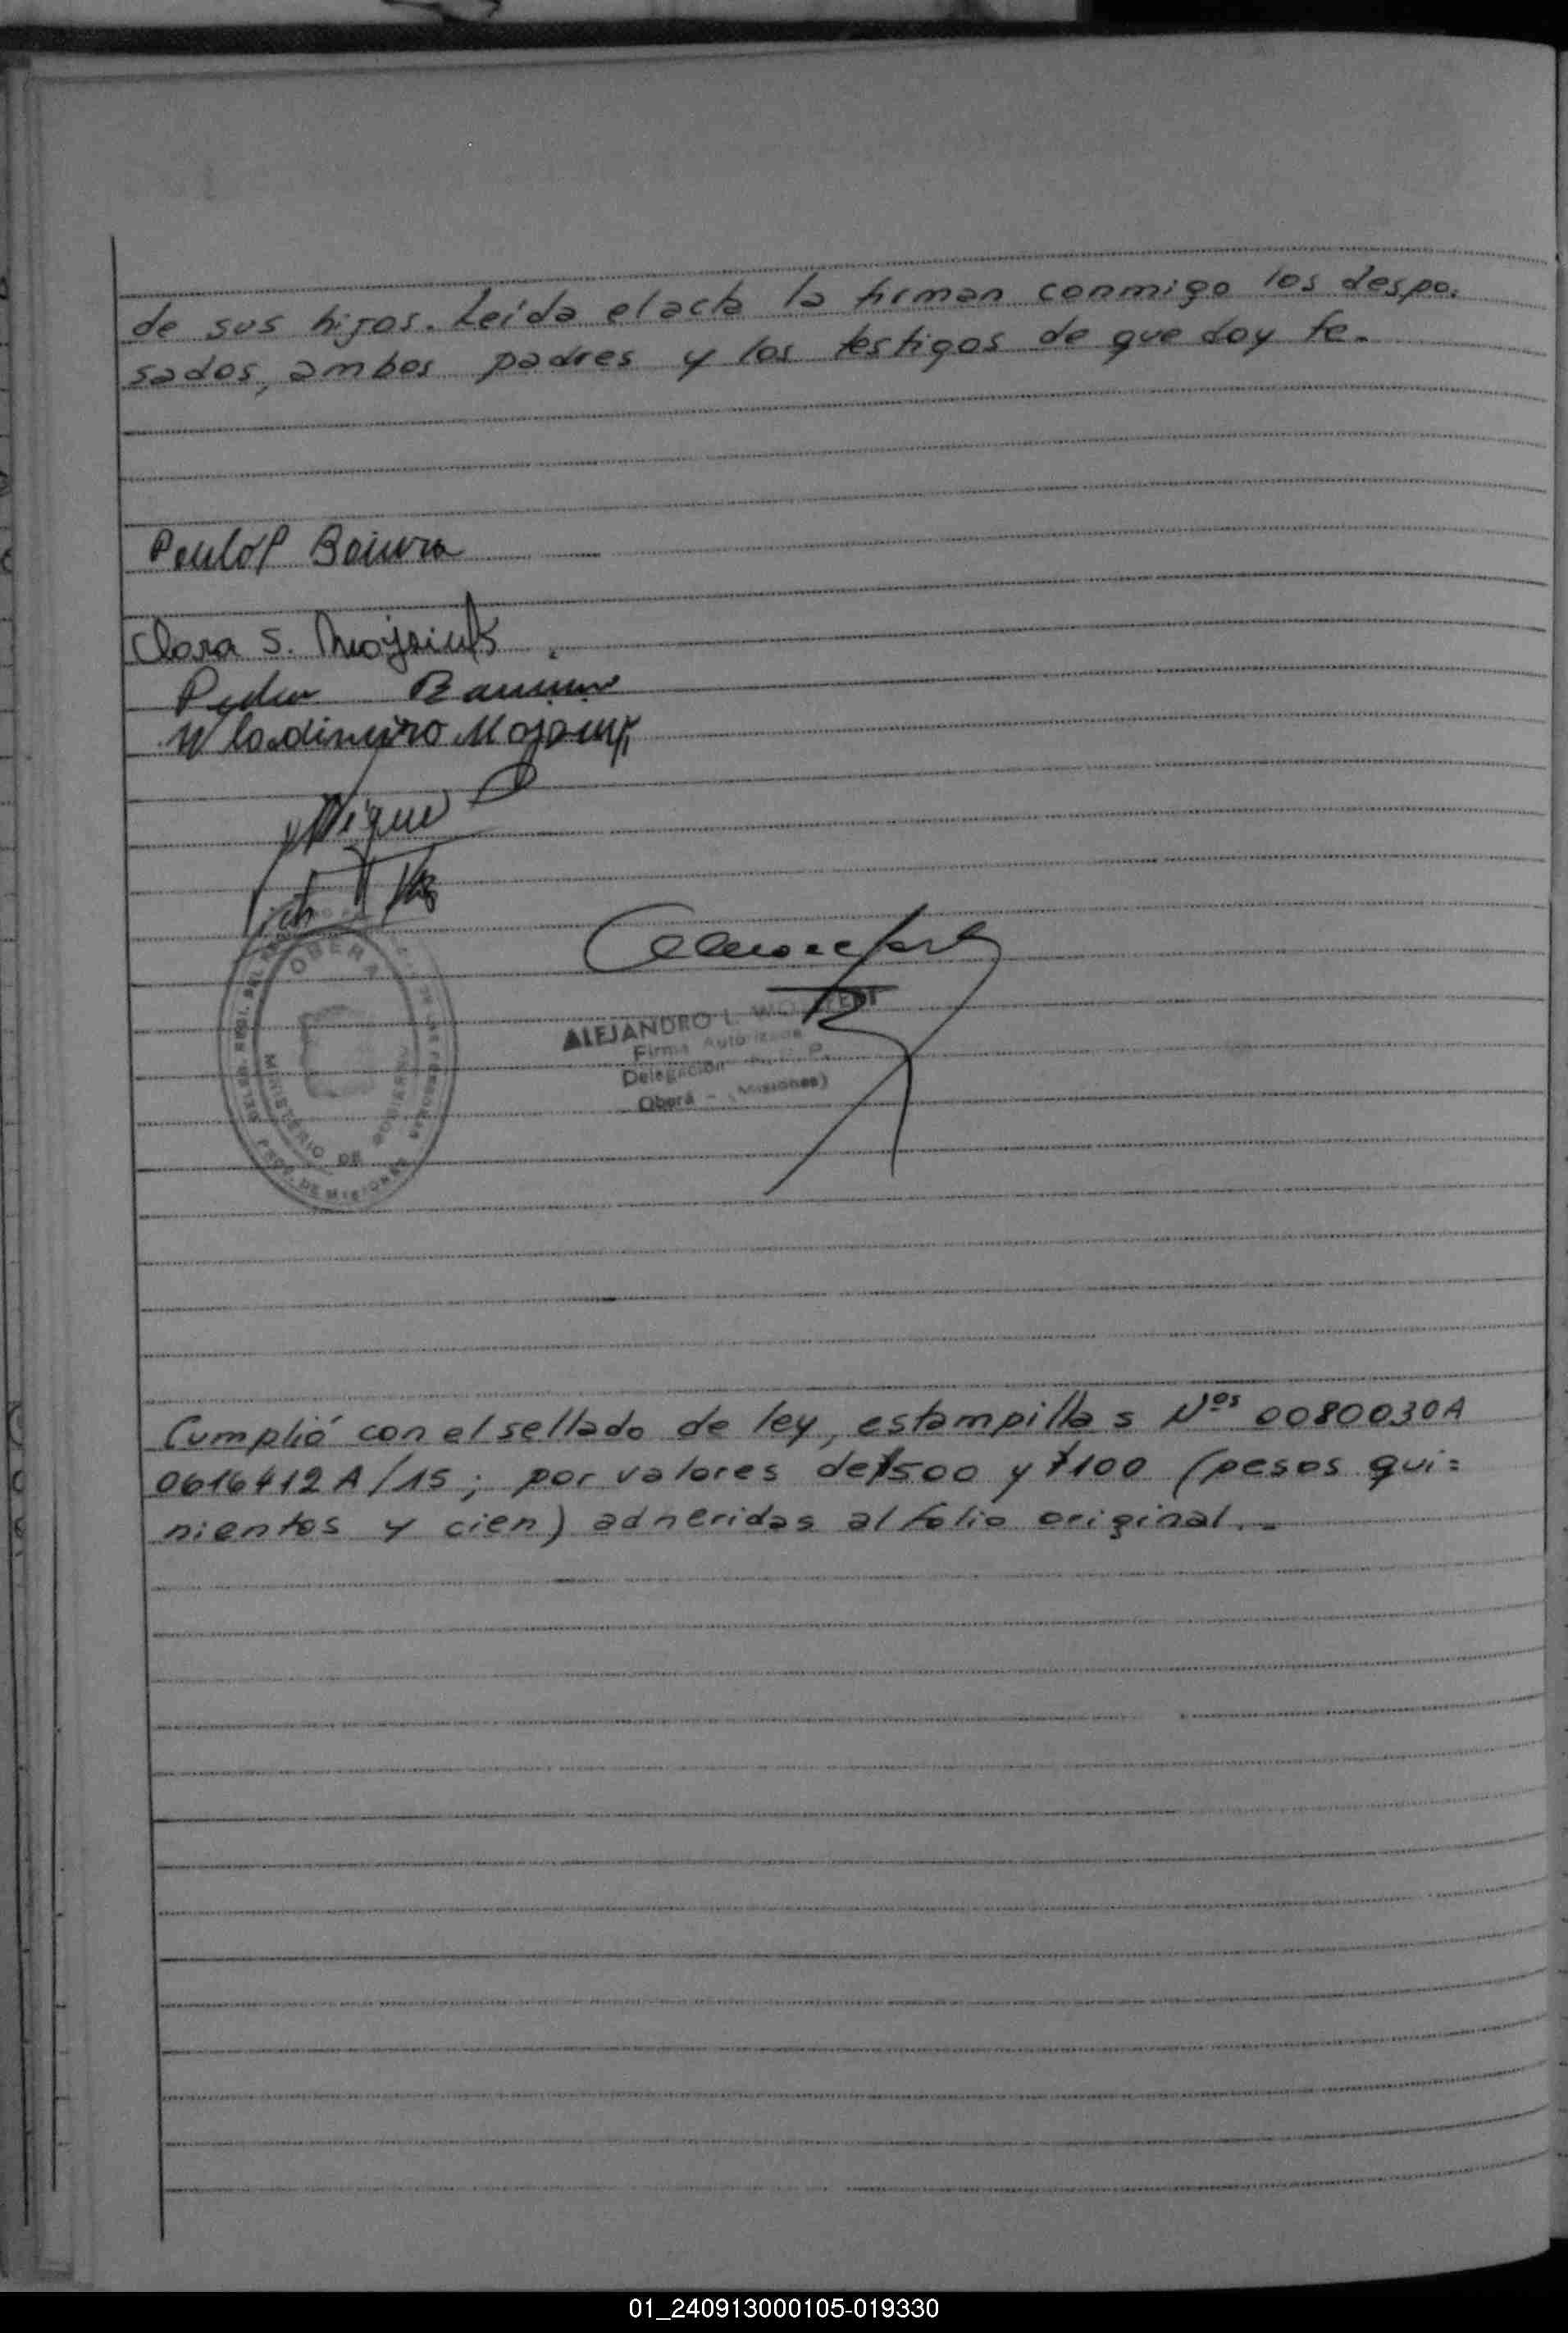 de sus hijos. Leída el acta la firman conmigo los despo.
sados, ambos padres y los testigos de que doy fe.
Clara S.
Pedro
Wladimiro
OBERA
MINISTERIO DE GOBIERNO
PROV. DE MISIONES
ALEJANDRO L.
Firma Autorizada
Delegación
Oberá - (Misiones)
Cumplió con el sellado de ley, estampillas Nos 0080030A
0616412A/15; por valores de $500 y $100 (pesos qui=
nientos y cien) adheridas al folio original.-
01_240913000105-019330